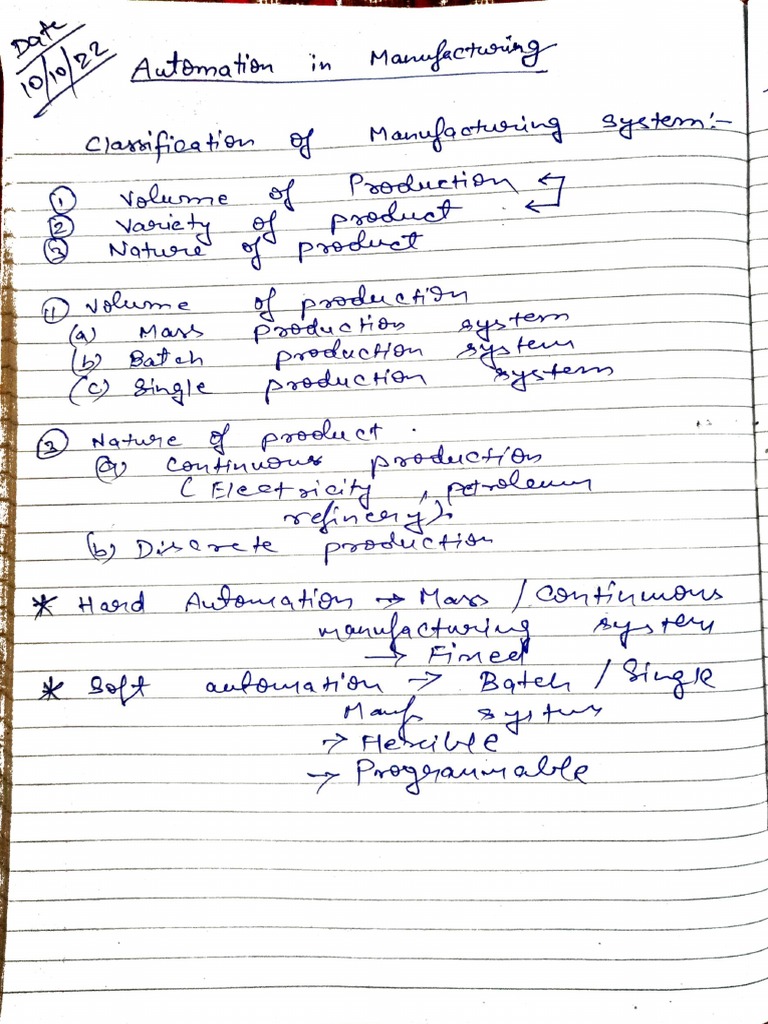 Date
10/10/22
Automation in Manufacturing
Classification of Manufacturing system:-
① Volume of Production
② Variety of product
③ Nature of product
① Volume of production
(a) Mass production system
(b) Batch production system
(c) Single production system
③ Nature of product.
(a) Continuous production
(Electricity, petroleum
refinery).
(b) Discrete production
* Hard Automation → Mass / Continuous
manufacturing system
→ Fixed
* Soft automation → Batch / Single
Manf. system
→ Flexible
→ Programmable